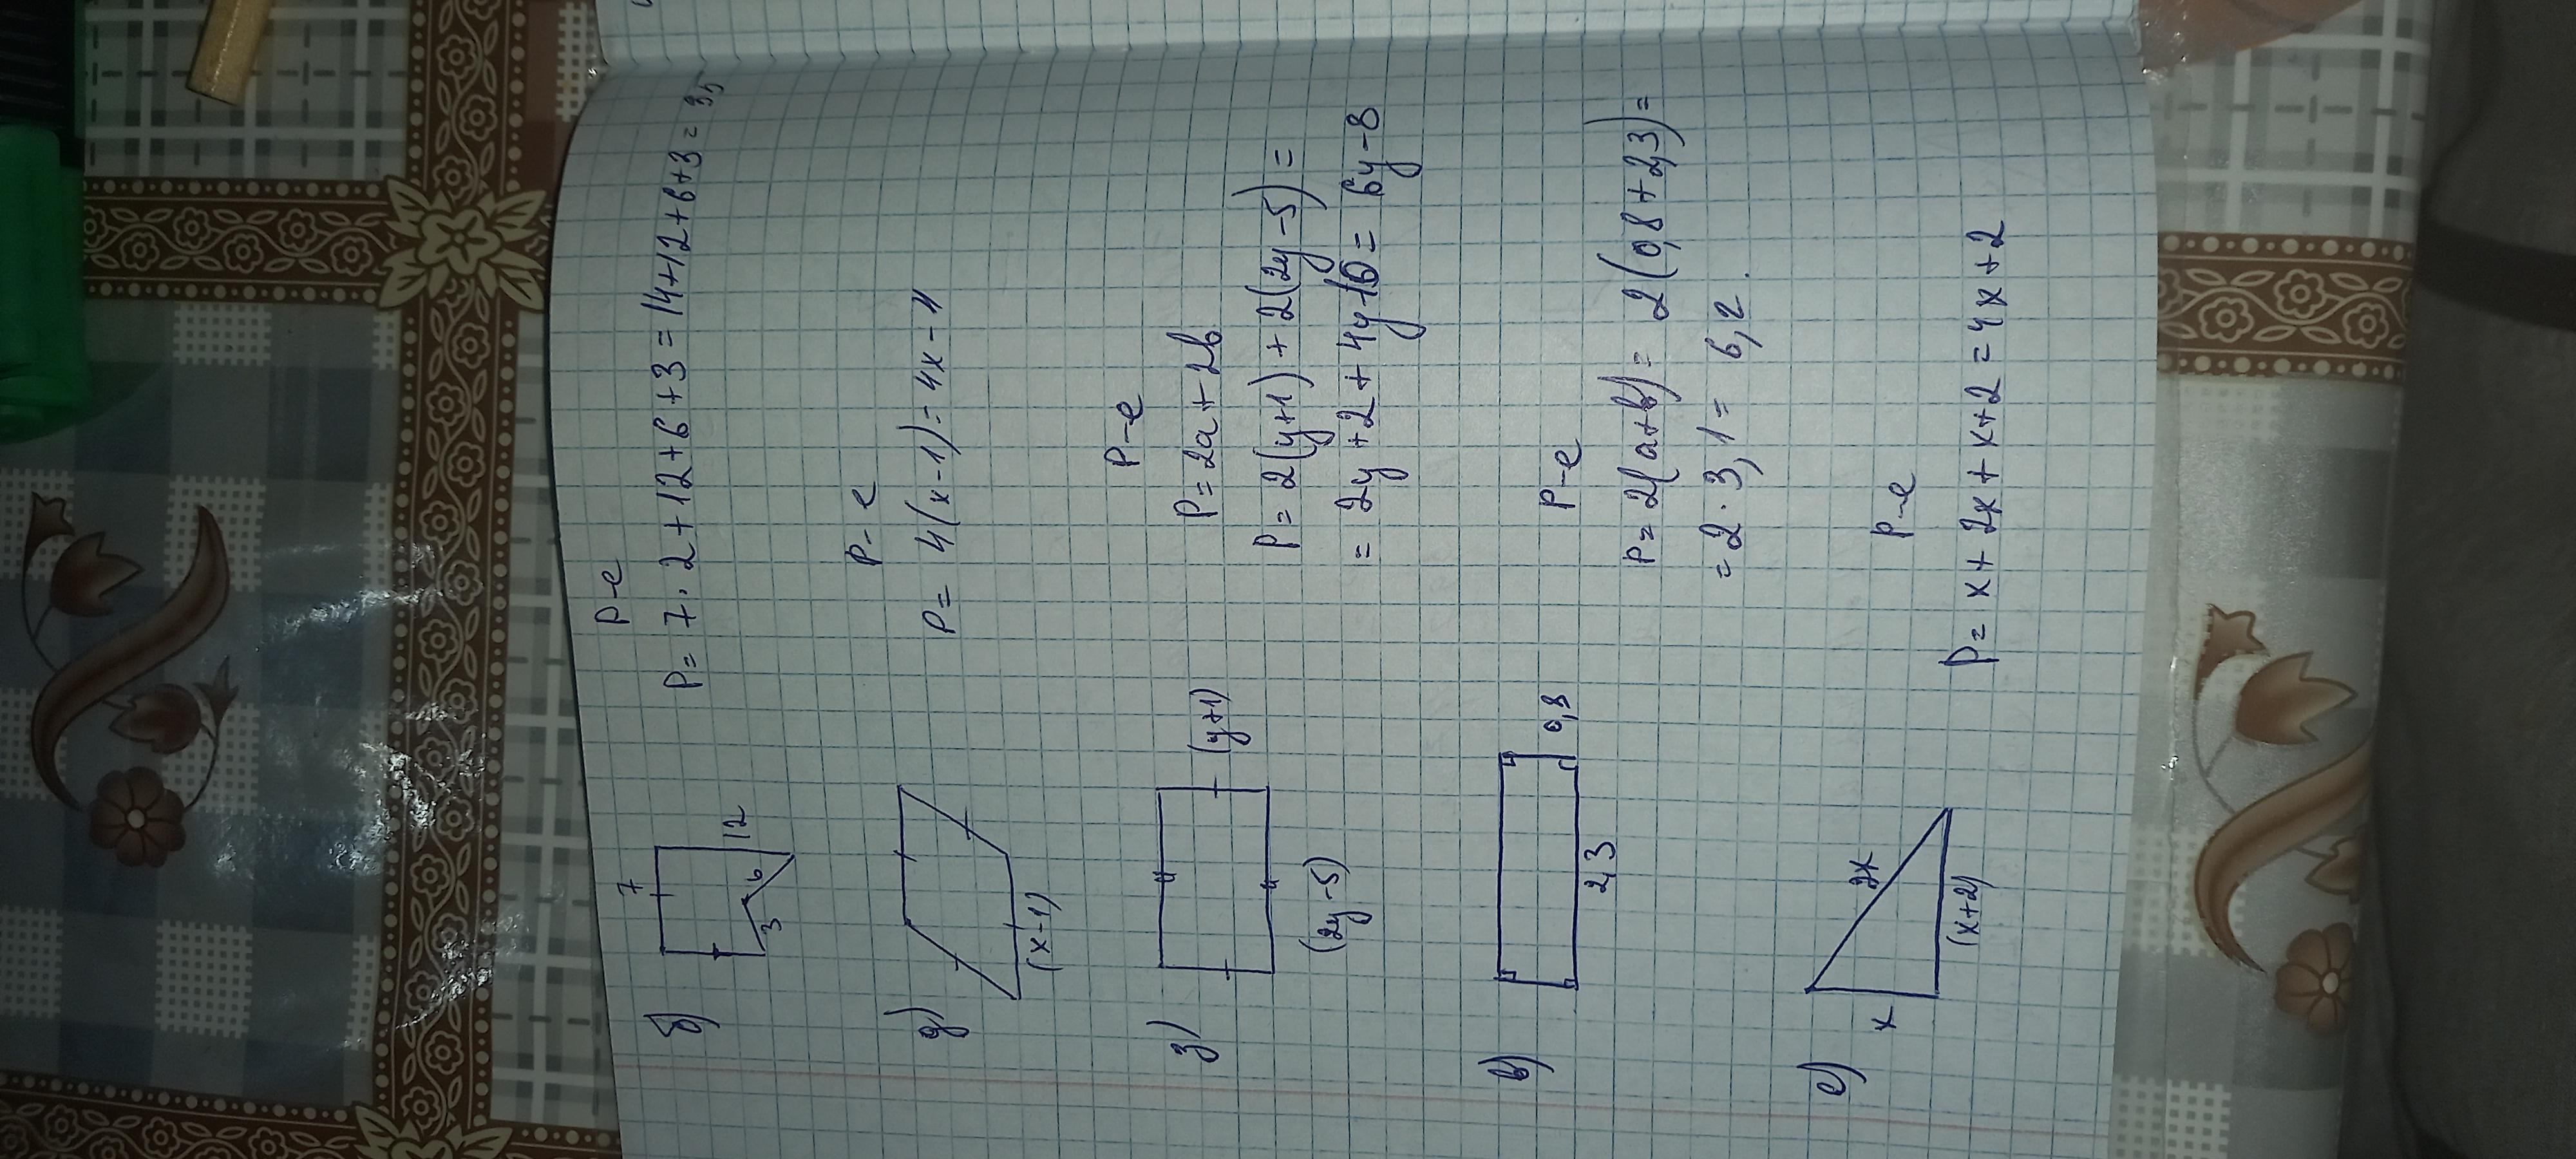 б)
7
12
6
3
P-е
P= 7·2+12+6+3=14+12+6+3=35
д)
(x-1)
P-е
P= 4(x-1)=4x-4
з)
(y+1)
(2y-5)
P-е
P=2a+2b
P=2(y+1)+2(2y-5)=
=2y+2+4y-10=6y-8
в)
0,8
2,3
P-е
P=2(a+b)=2(0,8+2,3)=
=2·3,1= 6,2.
е)
x
2x
(x+2)
P-е
P=x+2x+x+2=4x+2